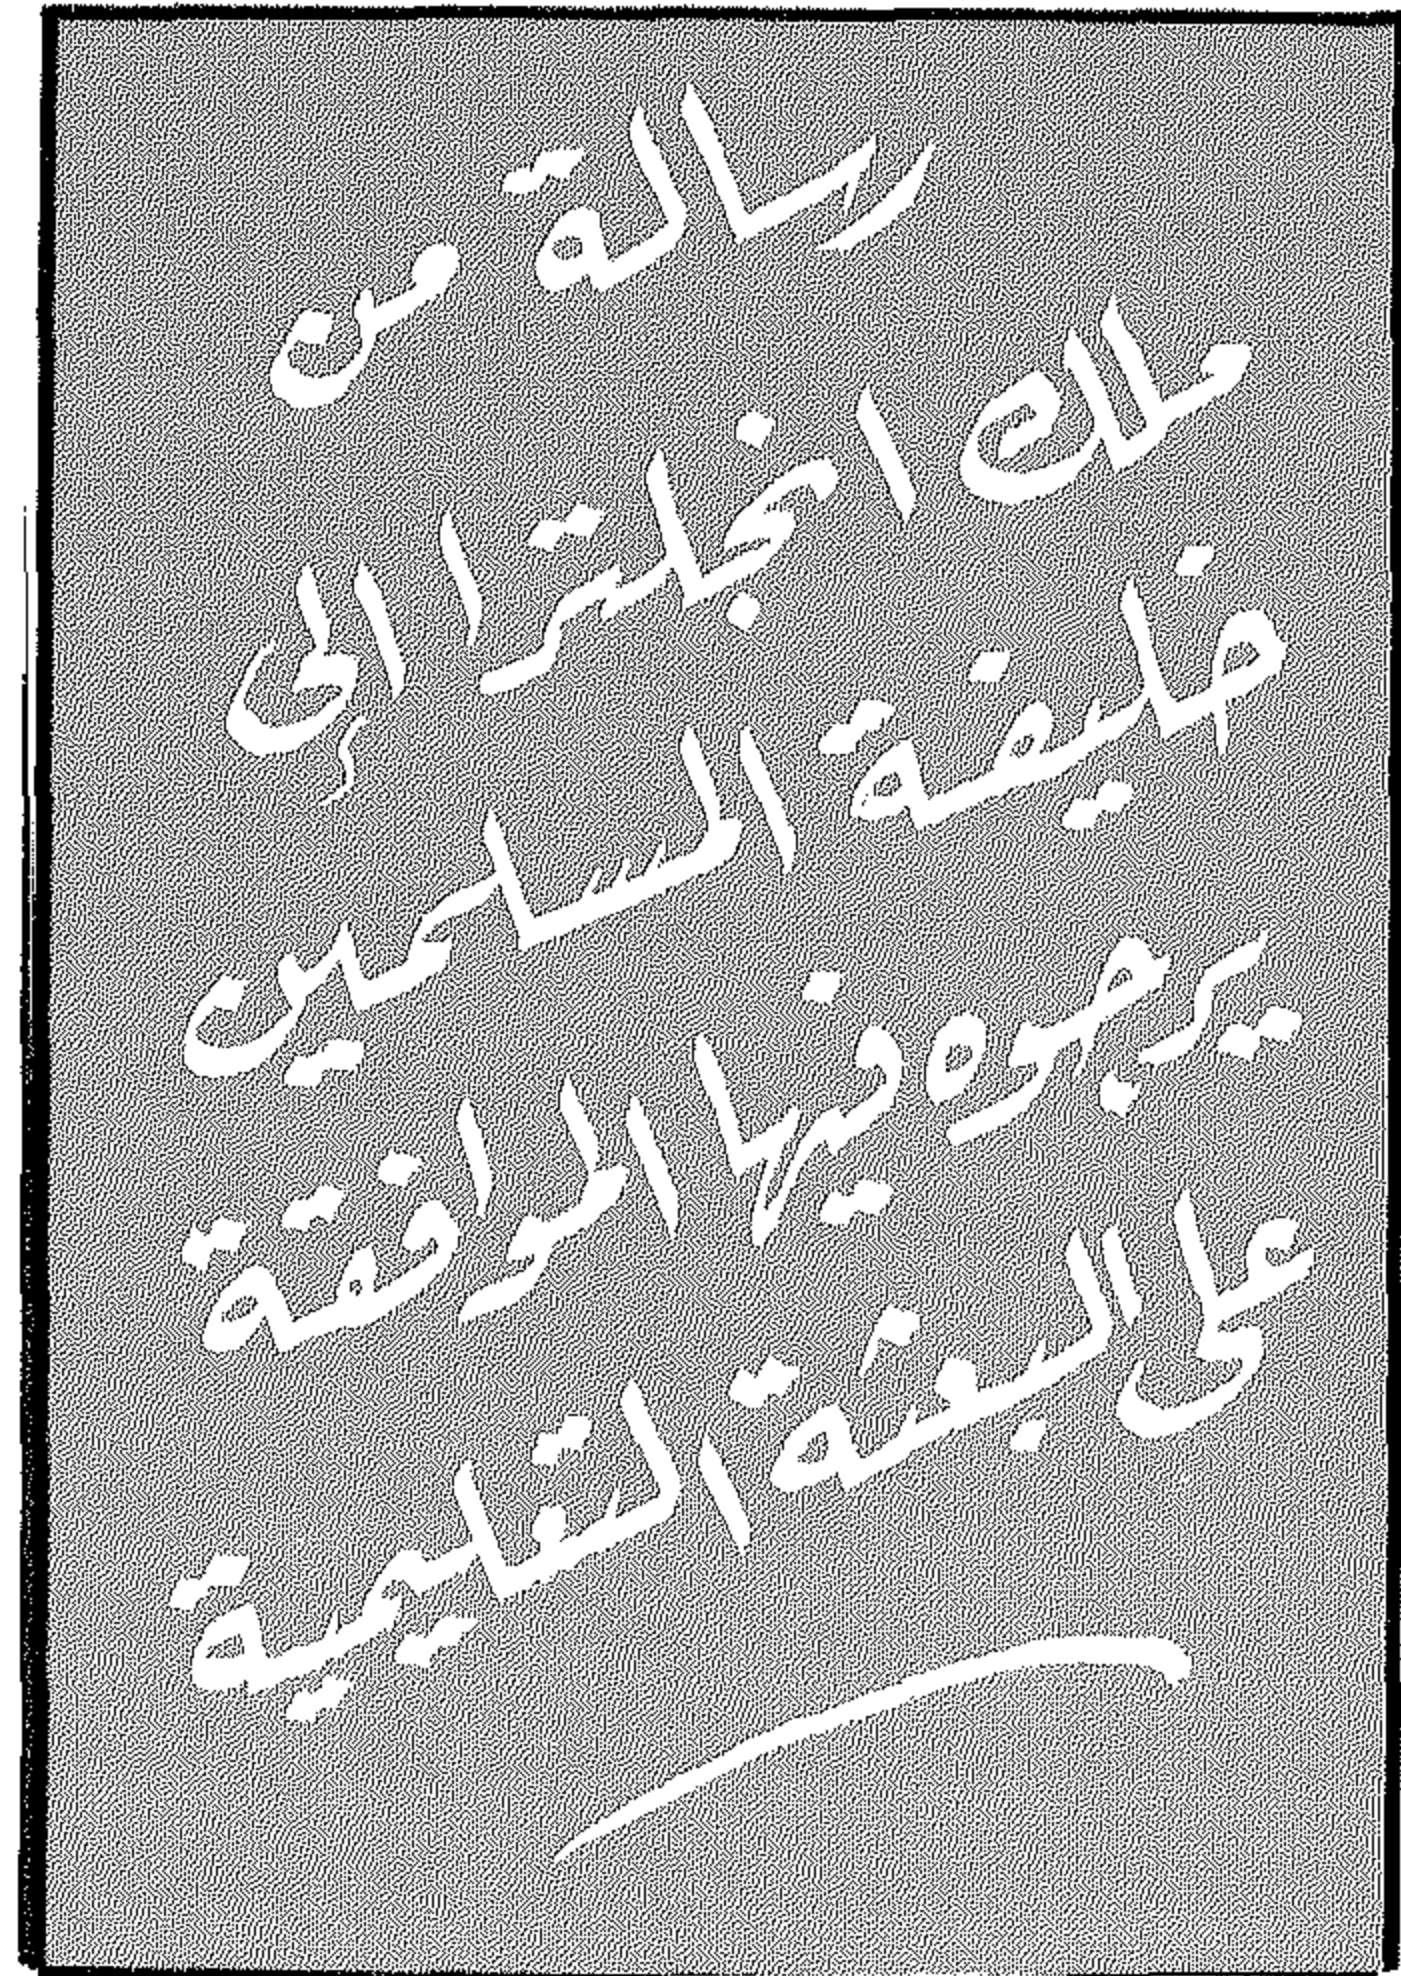 رسالة من
ملك انجلترا الى
خليفة المسلمين
يرجوه فيها الموافقة
على البعثة التعليمية